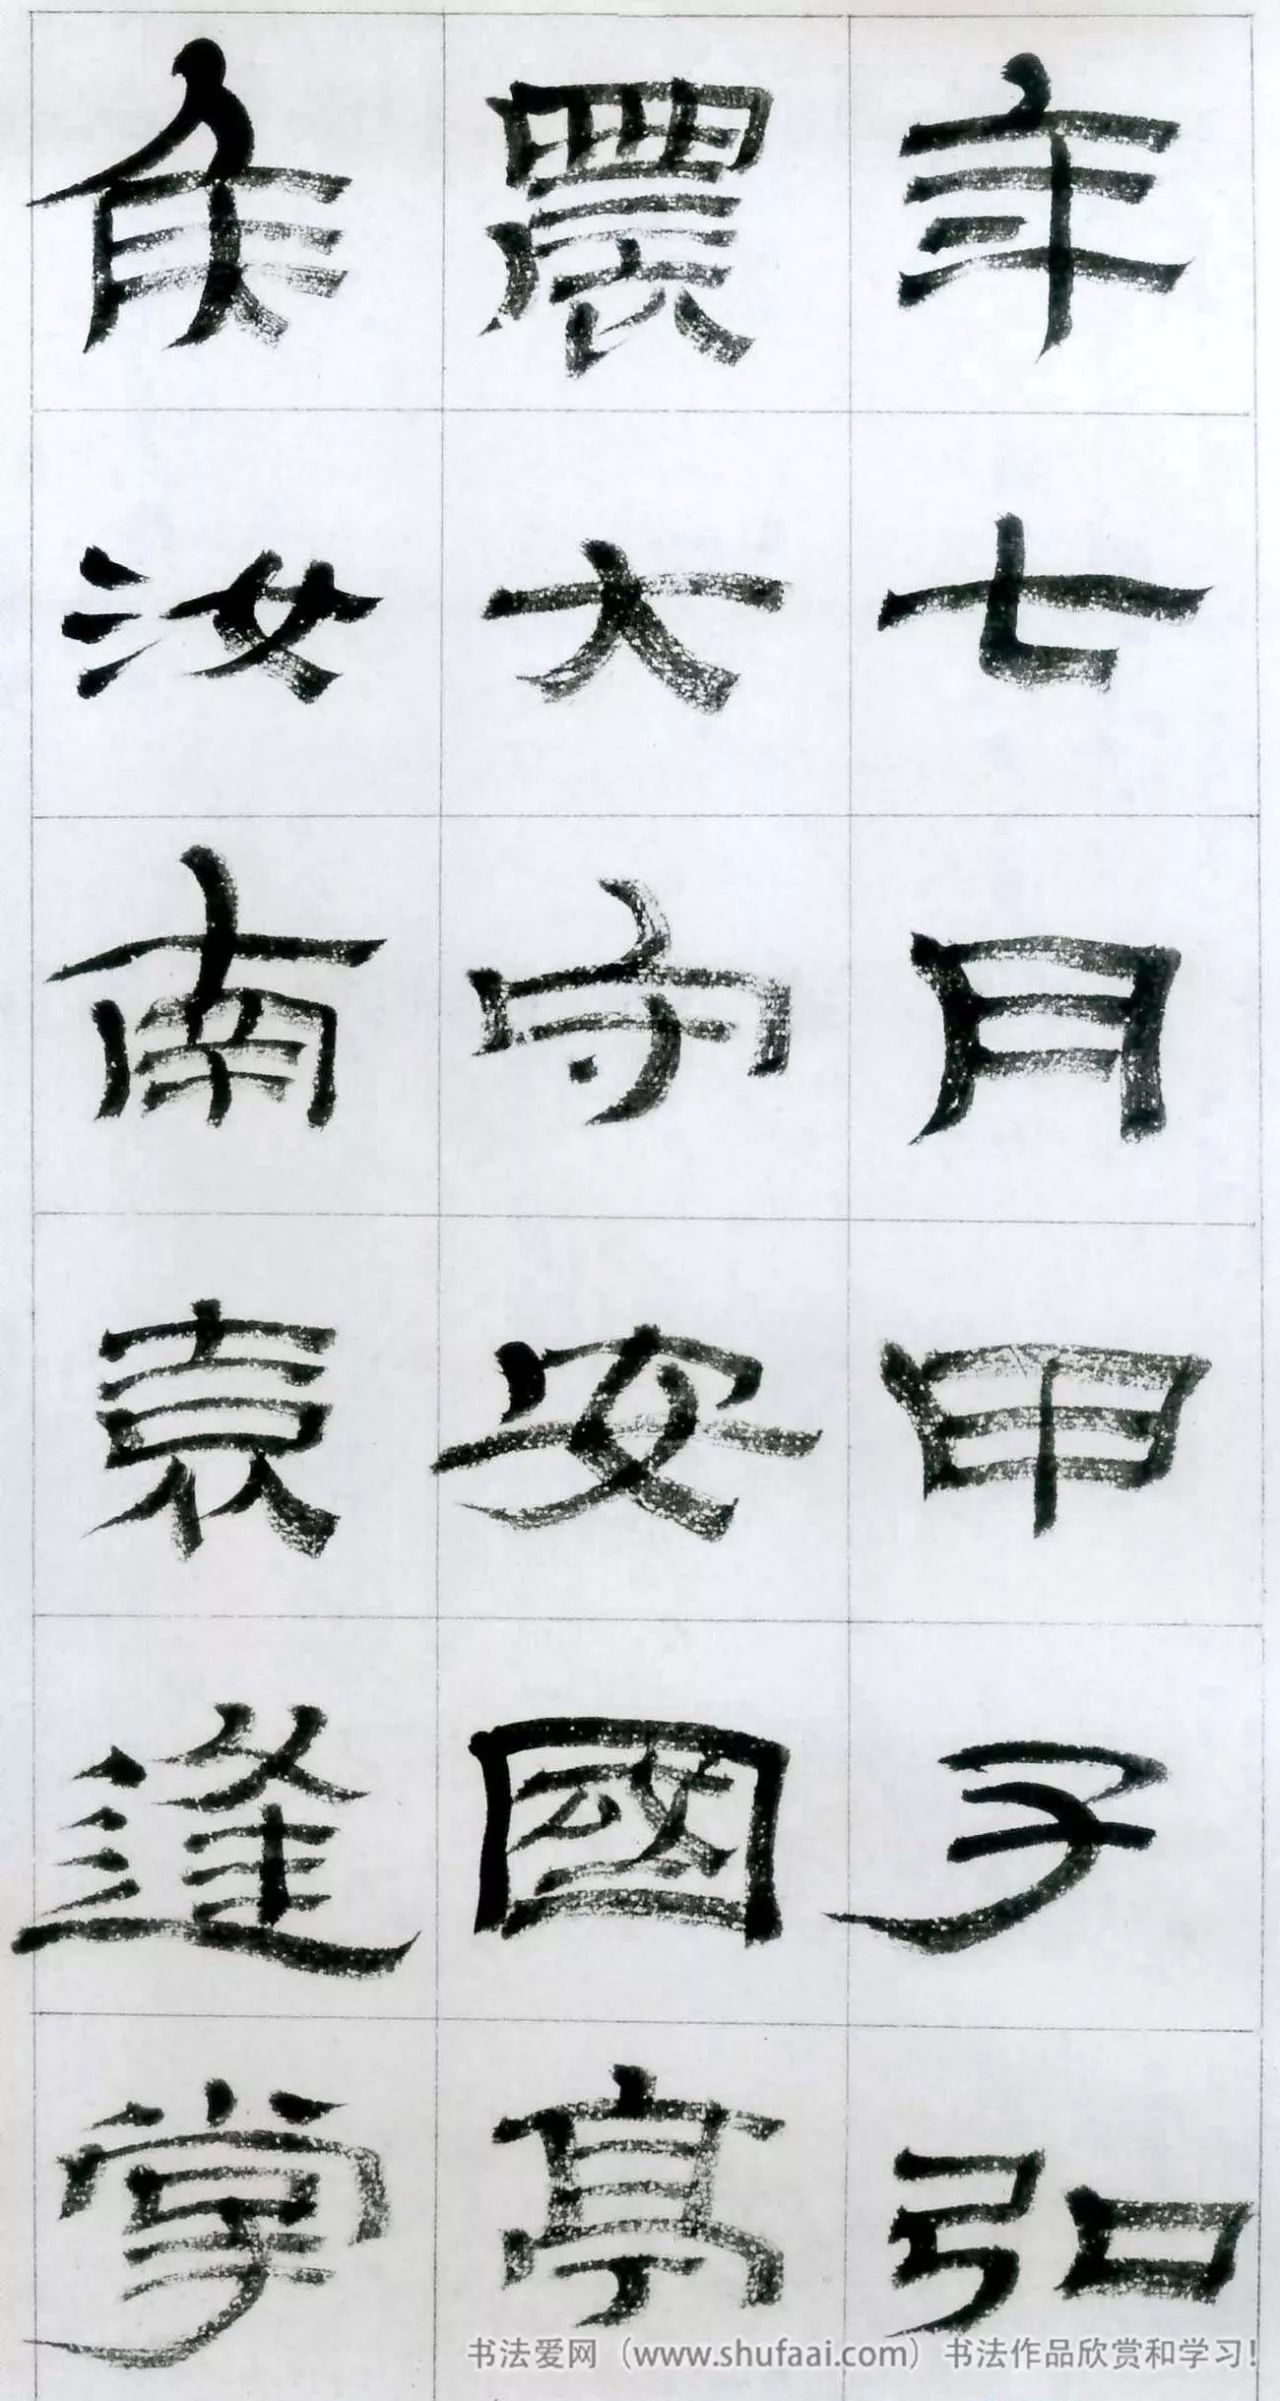 年七月甲子弘
農大守安國亭
侯汝南袁逢掌
书法爱网（www.shufaai.com）书法作品欣赏和学习！